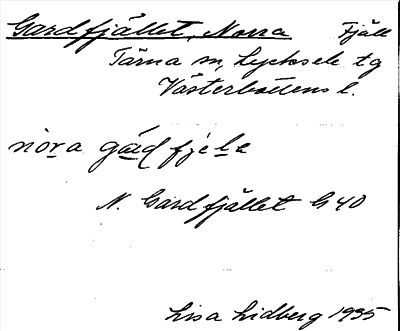 Gardfjället, Norra Fjäll
Tärna sn, Lycksele tg
Västerbottens l.
nòra gád fjela
N. Gardfjället G 40
Lisa Lidberg 1935